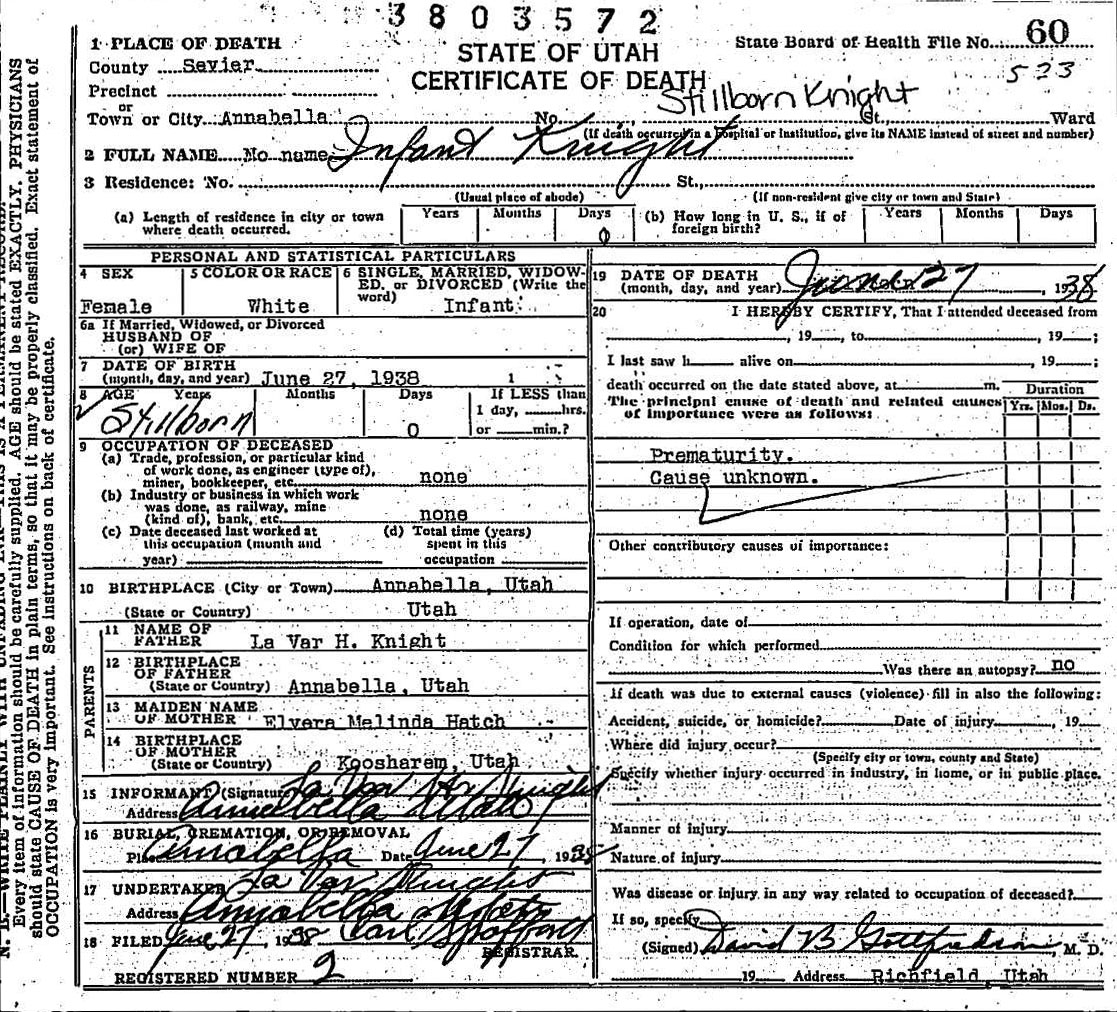 3803572
1 PLACE OF DEATH
STATE OF UTAH
CERTIFICATE OF DEATH
State Board of Health File No. 60
523
County Sevier
Precinct
or
Town or City Annabella No. St., Ward
Stillborn Knight
(If death occurred in a hospital or institution, give its NAME instead of street and number)
2 FULL NAME No name Infant Knight
3 Residence: No. St.,
(Usual place of abode) (If non-resident give city or town and State)
(a) Length of residence in city or town where death occurred. Years Months Days 0
(b) How long in U. S., if of foreign birth? Years Months Days
PERSONAL AND STATISTICAL PARTICULARS
4 SEX Female
5 COLOR OR RACE White
6 SINGLE, MARRIED, WIDOWED, or DIVORCED (Write the word) Infant
6a If Married, Widowed, or Divorced
HUSBAND OF
(or) WIFE OF
7 DATE OF BIRTH
(month, day, and year) June 27, 1938
8 AGE Years Months Days If LESS than
Stillborn 0 1 day, hrs.
or min.?
9 OCCUPATION OF DECEASED
(a) Trade, profession, or particular kind
of work done, as engineer (type of),
miner, bookkeeper, etc. none
(b) Industry or business in which work
was done, as railway, mine
(kind of), bank, etc. none
(c) Date deceased last worked at
this occupation (month and
year)
(d) Total time (years)
spent in this
occupation
10 BIRTHPLACE (City or Town) Annabella, Utah
(State or Country) Utah
PARENTS
11 NAME OF
FATHER La Var H. Knight
12 BIRTHPLACE
OF FATHER
(State or Country) Annabella, Utah
13 MAIDEN NAME
OF MOTHER Elvera Malinda Hatch
14 BIRTHPLACE
OF MOTHER
(State or Country) Koosharem, Utah
15 INFORMANT (Signature) La Var H. Knight
Address Annabella Utah
16 BURIAL, CREMATION, OR REMOVAL
Place Annabella Date June 27, 1938
17 UNDERTAKER La Var Knight
Address Annabella Utah
18 FILED June 27, 1938 Carl
REGISTRAR
REGISTERED NUMBER 2
19 DATE OF DEATH
(month, day, and year) June 27, 1938
20 I HEREBY CERTIFY, That I attended deceased from
, 19 , to , 19 ;
I last saw h alive on , 19 ;
death occurred on the date stated above, at m.
The principal cause of death and related causes
of importance were as follows:
Duration
Yrs. Mos. Ds.
Prematurity.
Cause unknown.
Other contributory causes of importance:
If operation, date of
Condition for which performed
Was there an autopsy? no
If death was due to external causes (violence) fill in also the following:
Accident, suicide, or homicide? Date of injury , 19
Where did injury occur?
(Specify city or town, county and State)
Specify whether injury occurred in industry, in home, or in public place.
Manner of injury
Nature of injury
Was disease or injury in any way related to occupation of deceased?
If so, specify
(Signed) David B Gottfredson, M. D.
19 Address Richfield, Utah
Every item of information should be carefully supplied. AGE should be stated EXACTLY. PHYSICIANS
should state CAUSE OF DEATH in plain terms, so that it may be properly classified. Exact statement of
OCCUPATION is very important. See instructions on back of certificate.